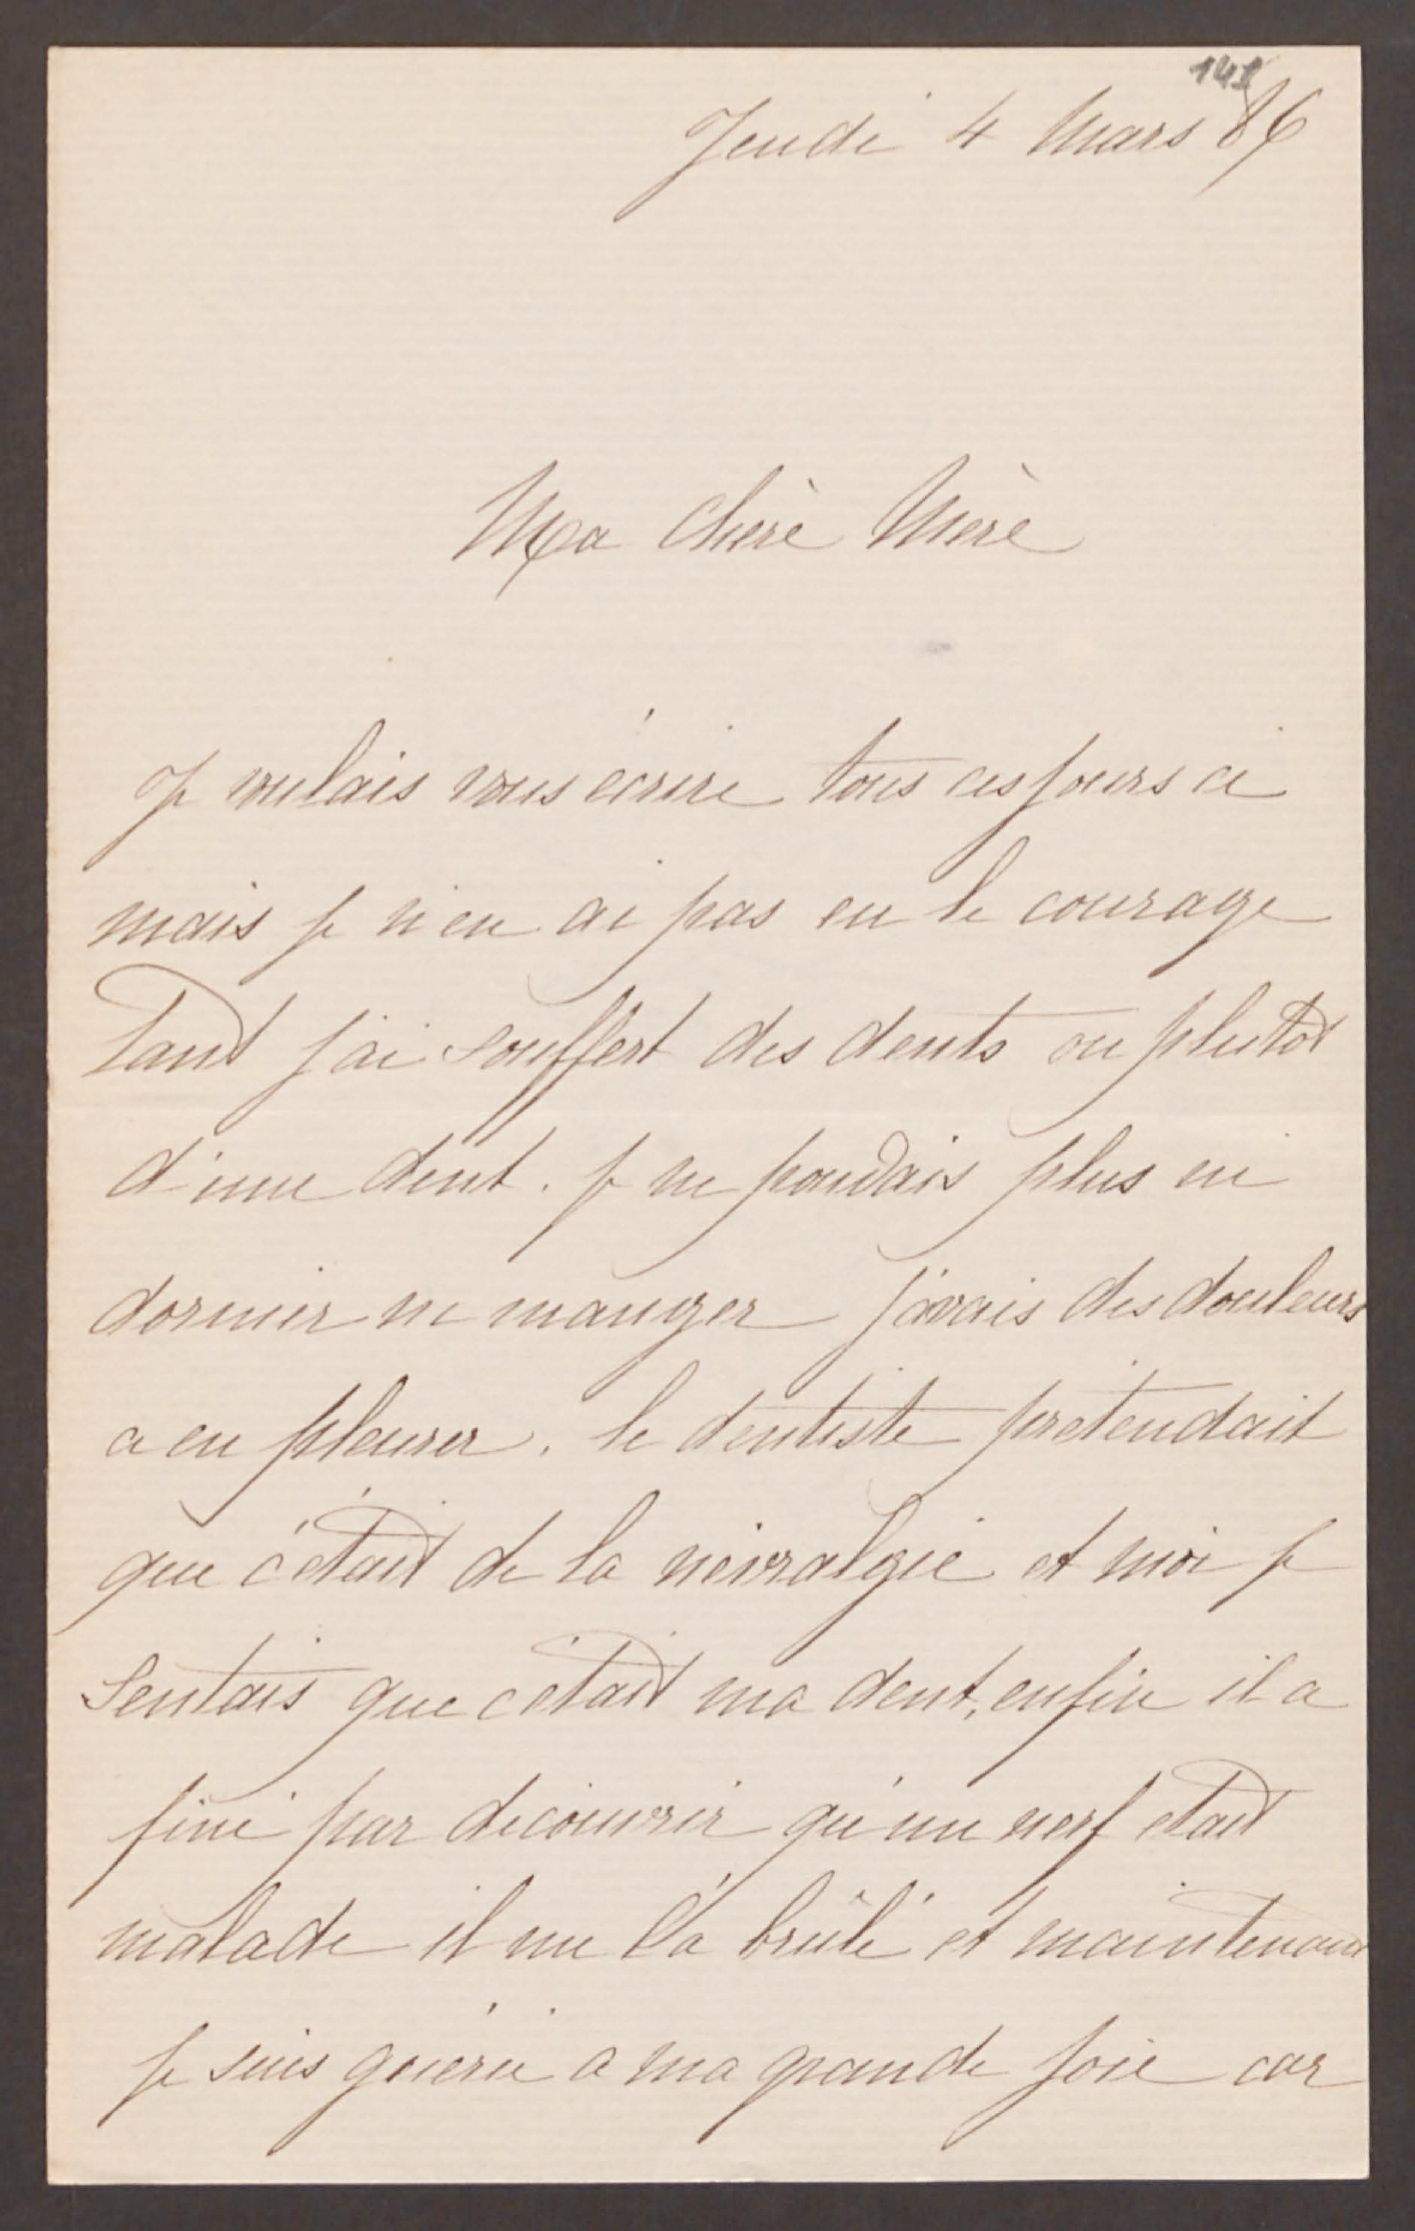 141
Jeudi 4 Mars 86
Ma chère Mère
Je voulais vous écrire tous ces jours ci
mais je n'en ai pas eu le courage
tant j'ai souffert des dents ou plutot
d'une dent. je ne pouvais plus ni
dormir ni manger j'avais des douleurs
a en pleurer. le dentiste pretendait
que c'était de la nevralgie et moi je
sentais que c'était ma dent, enfin il a
fini par decouvrir qu'un nerf etait
malade il me l'a brûlé et maintenant
je suis guérie a ma grande joie car